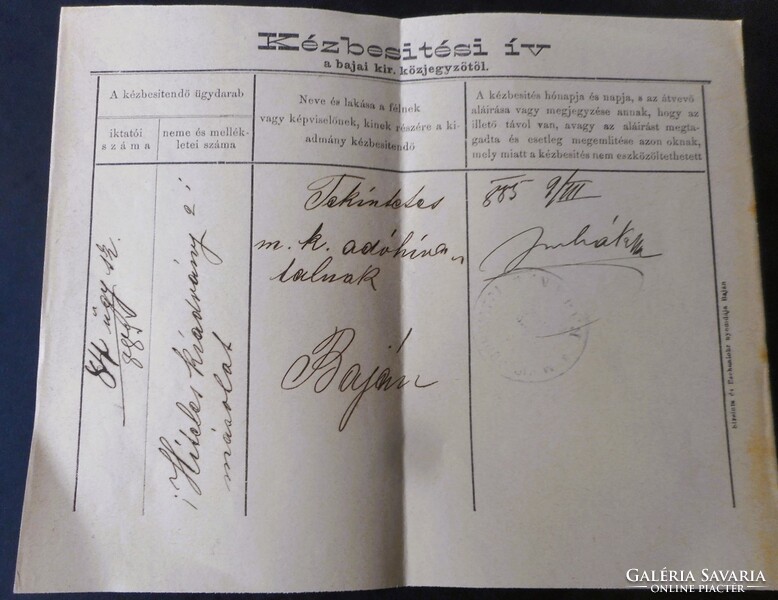 Kézbesitési ív
a bajai kir. közjegyzőtől.
A kézbesitendő ügydarab
iktatói
száma
neme és mellék-
letei száma
Neve és lakása a félnek
vagy képviselőnek, kinek részére a ki-
admány kézbesitendő
A kézbesités hónapja és napja, s az átvevő
aláirása vagy megjegyzése annak, hogy az
illető távol van, avagy az aláirást megta-
gadta és esetleg megemlitése azon oknak,
mely miatt a kézbesités nem eszközöltethetett
ügy sz.
885
1 Hiteles kiadvány 2
másolat
Tekintetes
m. k. adóhiva-
talnak
Baján
885 9/III
nyomdája Baján
GALÉRIA SAVARIA
ONLINE PIACTÉR